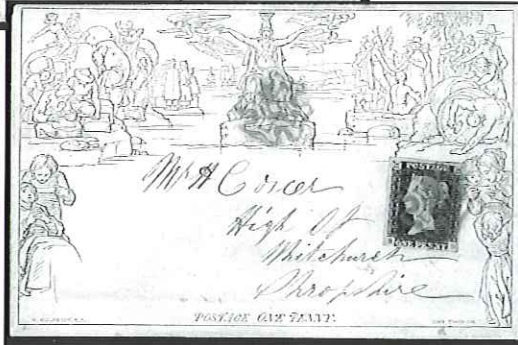 Mr H
High St
Whitchurch
Shropshire
POSTAGE
ONE PENNY
POSTAGE ONE PENNY.